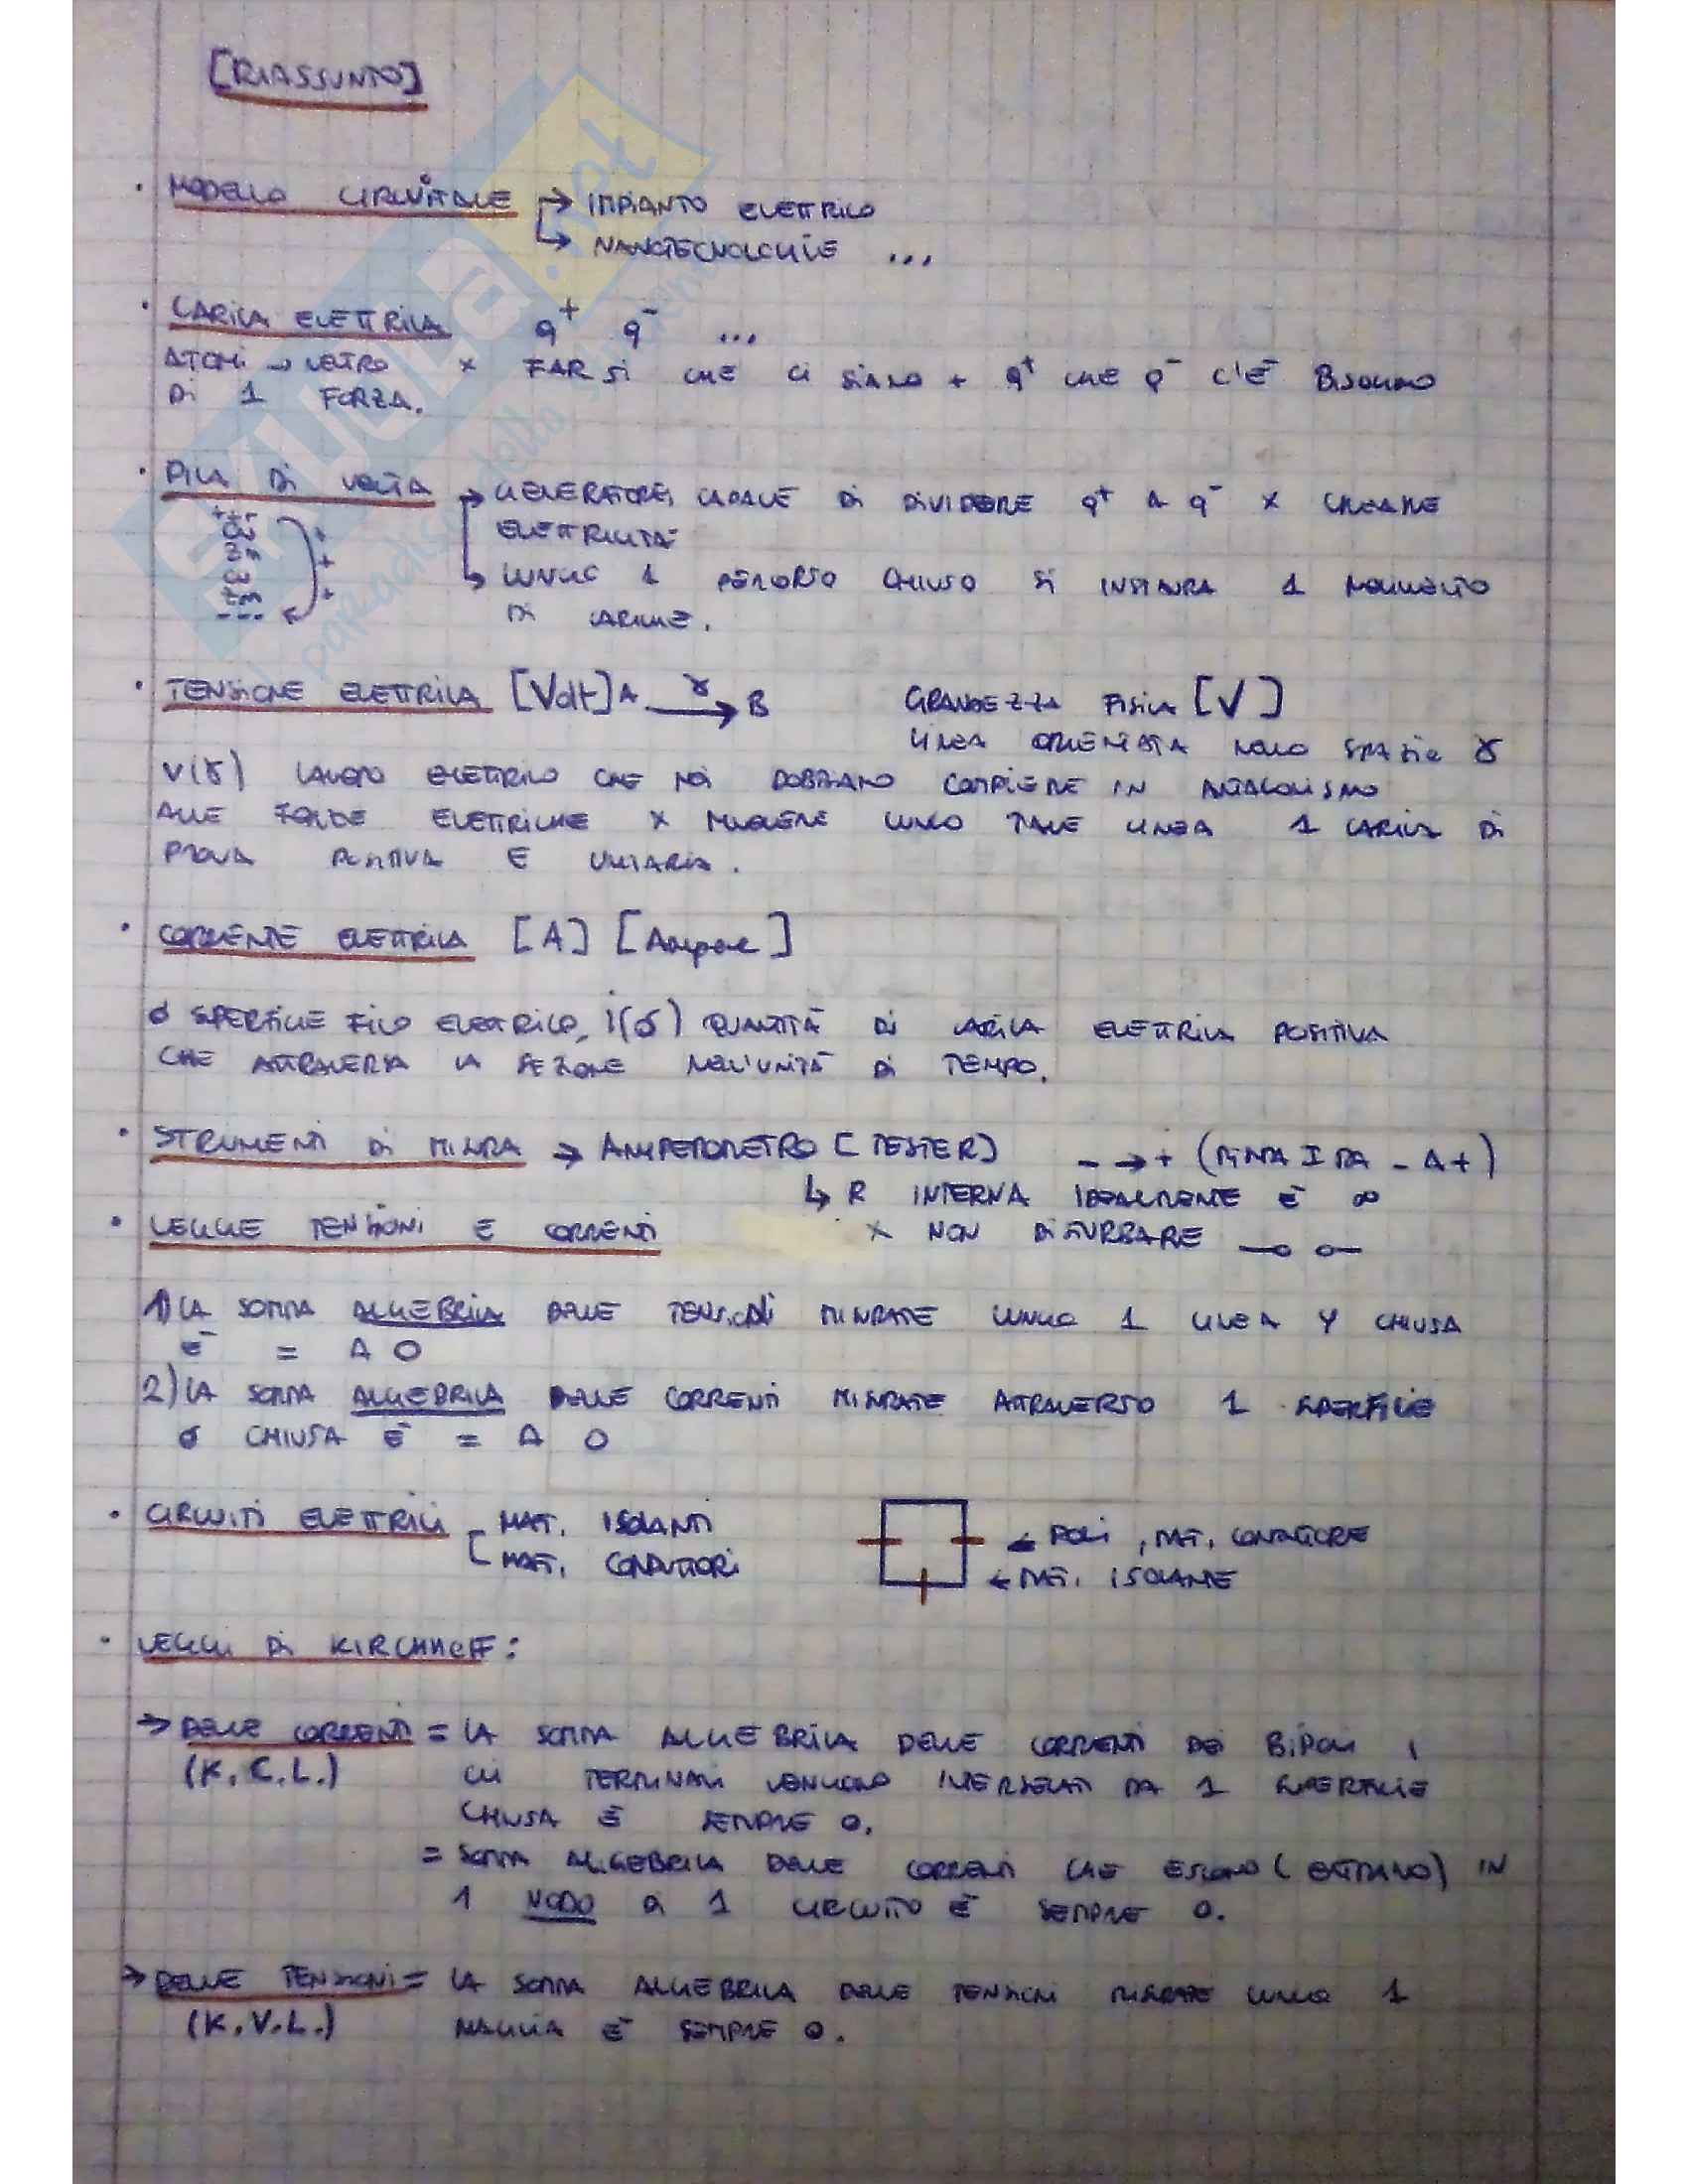 [RIASSUNTO]
• MODELLO CIRCUITALE → IMPIANTO ELETTRICO
↳ NANOTECNOLOGIE ...
• CARICA ELETTRICA q⁺ q⁻ ...
ATOMI → NEUTRO x FAR SI CHE CI SIANO + q⁺ CHE q⁻ C'È BISOGNO
DI 1 FORZA.
• PILA DI VOLTA → GENERATORE, CAPACE DI DIVIDERE q⁺ A q⁻ x CREARE
ELETTRICITÀ
+++
Cu
Zn
Cu
Zn
---
+
+
+
↳ LUNGO 1 PERCORSO CHIUSO SI INSTAURA 1 MOVIMENTO
DI CARICHE.
• TENSIONE ELETTRICA [Volt] A γ → B GRANDEZZA FISICA [V]
LINEA ORIENTATA NELLO SPAZIO γ
V(γ) LAVORO ELETTRICO CHE NOI DOBBIAMO COMPIERE IN ANTAGONISMO
ALLE FORZE ELETTRICHE x MUOVERE LUNGO TALE LINEA 1 CARICA DI
PROVA POSITIVA E UNITARIA.
• CORRENTE ELETTRICA [A] [Ampere]
σ SUPERFICIE FILO ELETTRICO, i(σ) QUANTITÀ DI CARICA ELETTRICA POSITIVA
CHE ATTRAVERSA LA SEZIONE NELL'UNITÀ DI TEMPO.
• STRUMENTI DI MISURA → AMPEROMETRO (TESTER) - → + (MISURA I DA - A +)
↳ R INTERNA IDEALMENTE È ∞
• LEGGE TENSIONI E CORRENTI x NON DISTURBARE —o o—
1) LA SOMMA ALGEBRICA DELLE TENSIONI MISURATE LUNGO 1 LINEA γ CHIUSA
È = A 0
2) LA SOMMA ALGEBRICA DELLE CORRENTI MISURATE ATTRAVERSO 1 SUPERFICIE
σ CHIUSA È = A 0
• CIRCUITI ELETTRICI MAT. ISOLANTI
MAT. CONDUTTORI
← POLI, MAT. CONDUTTORE
← MAT. ISOLANTE
• LEGGI DI KIRCHHOFF:
→ DELLE CORRENTI = LA SOMMA ALGEBRICA DELLE CORRENTI DEI BIPOLI I
(K.C.L.) CUI TERMINALI VENGONO INTERSECATI DA 1 SUPERFICIE
CHIUSA È SEMPRE 0.
= SOMMA ALGEBRICA DELLE CORRENTI CHE ESCONO (ENTRANO) IN
1 NODO DI 1 CIRCUITO È SEMPRE 0.
→ DELLE TENSIONI = LA SOMMA ALGEBRICA DELLE TENSIONI MISURATE LUNGO 1
(K.V.L.) MAGLIA È SEMPRE 0.